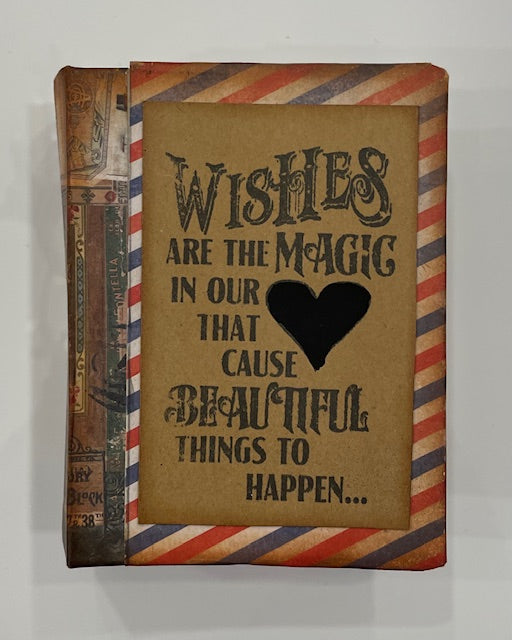 WISHES
ARE THE MAGIC
IN OUR
THAT
CAUSE
BEAUTIFUL
THINGS TO
HAPPEN...